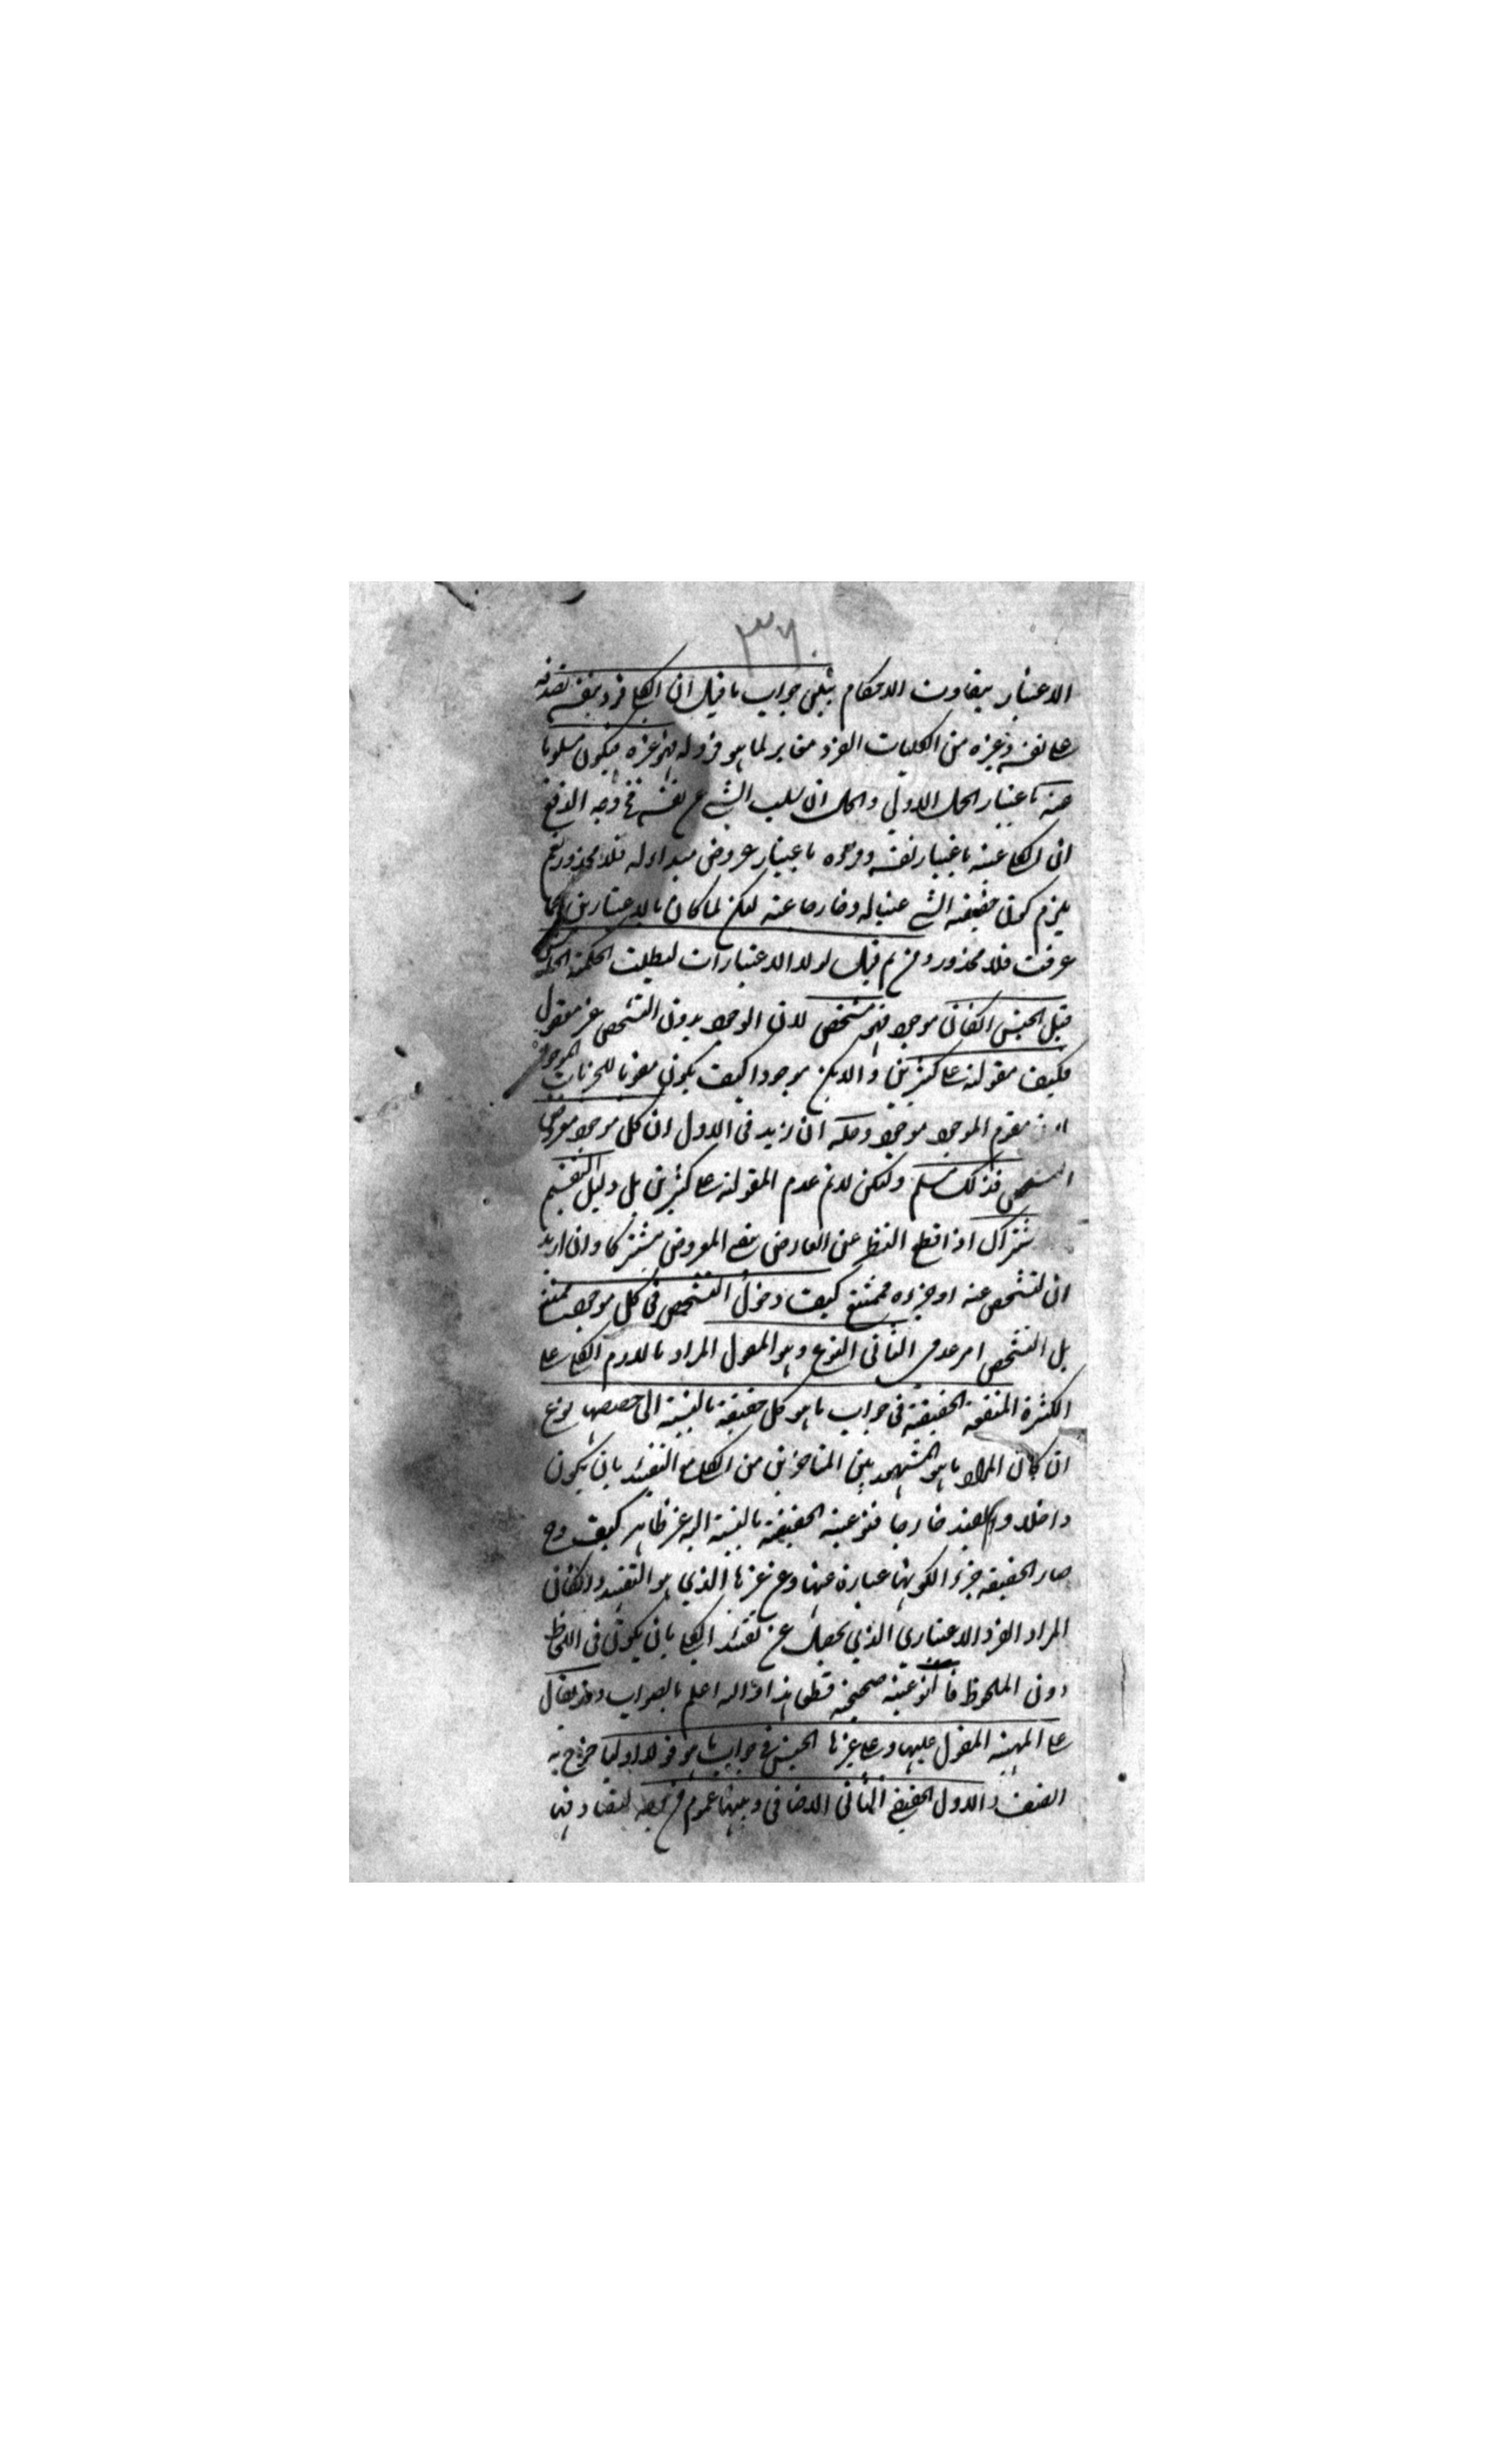 ٣٦
الاعتبار يتفاوت الاحكام يتلقى جواب ما قيل ان الكلي فرد نفسه لصدقه
على نفسه وغيره من الكليات الفرد مغاير لما هو فرد له فهو غيره فيكون مسلوبا
عنه باعتبار الحمل الاولي والحال ان سلب الشيء عن نفسه مح وجه الدفع
ان الكلي عينه باعتبار نفسه وفرده باعتبار عروض مبدأ له فلا محذور نعم
يلزم كون حقيقة الشيء عينا له وخارجا عنه لكن لما كان بالاعتبارين كما
عرفت فلا محذور ومن ثم قيل لولا الاعتبارات لبطلت الحكمة
قيل الجنس ان كان موجودا فهو متشخص لان الوجود بدون التشخص غير معقول
فكيف مقوليته على كثيرين والا لم يكن موجودا كيف يكون مقوما للجزئيات الموجودة
لان مقوم الموجود موجود وحله ان اريد في الاول ان كل موجود معروض
التشخص فذلك مسلم ولكن لا نم عدم المقولية على كثيرين بل دليل التقسيم
اذا قطع النظر عن العارض بقي المعروض مشتركا وان اريد
ان التشخص عينه او جزءه فممتنع كيف دخول التشخص في كل موجود ممتنع
بل التشخص امر عدمي الثاني النوع وهو المقول المراد بالمقول الكلي على
الكثرة المتفقة الحقيقة في جواب ما هو كل حقيقة بالنسبة الى حصصها نوع
ان كان المراد ما هو المشهور بين المتاخرين من الكلي مع التقييد بان يكون
داخلا والقيد خارجا فنوعية الحقيقة بالنسبة اليه غير ظاهر كيف وح
صار الحقيقة جزءا لكونها عبارة عنها وعن غيرها الذي هو التقييد وان كان
المراد الفرد الاعتباري الذي يحصل عن تقييد الكلي بان يكون في اللحاظ
دون الملحوظ فالنوعية صحيحة قطعا هذا والله اعلم بالصواب وقد يقال
على المهية المقول عليها وعلى غيرها الجنس في جواب ما هو قولا اوليا خرج به
الصنف والاول الحقيقي الثاني الاضافي وبينهما عموم من وجه لتصادقهما